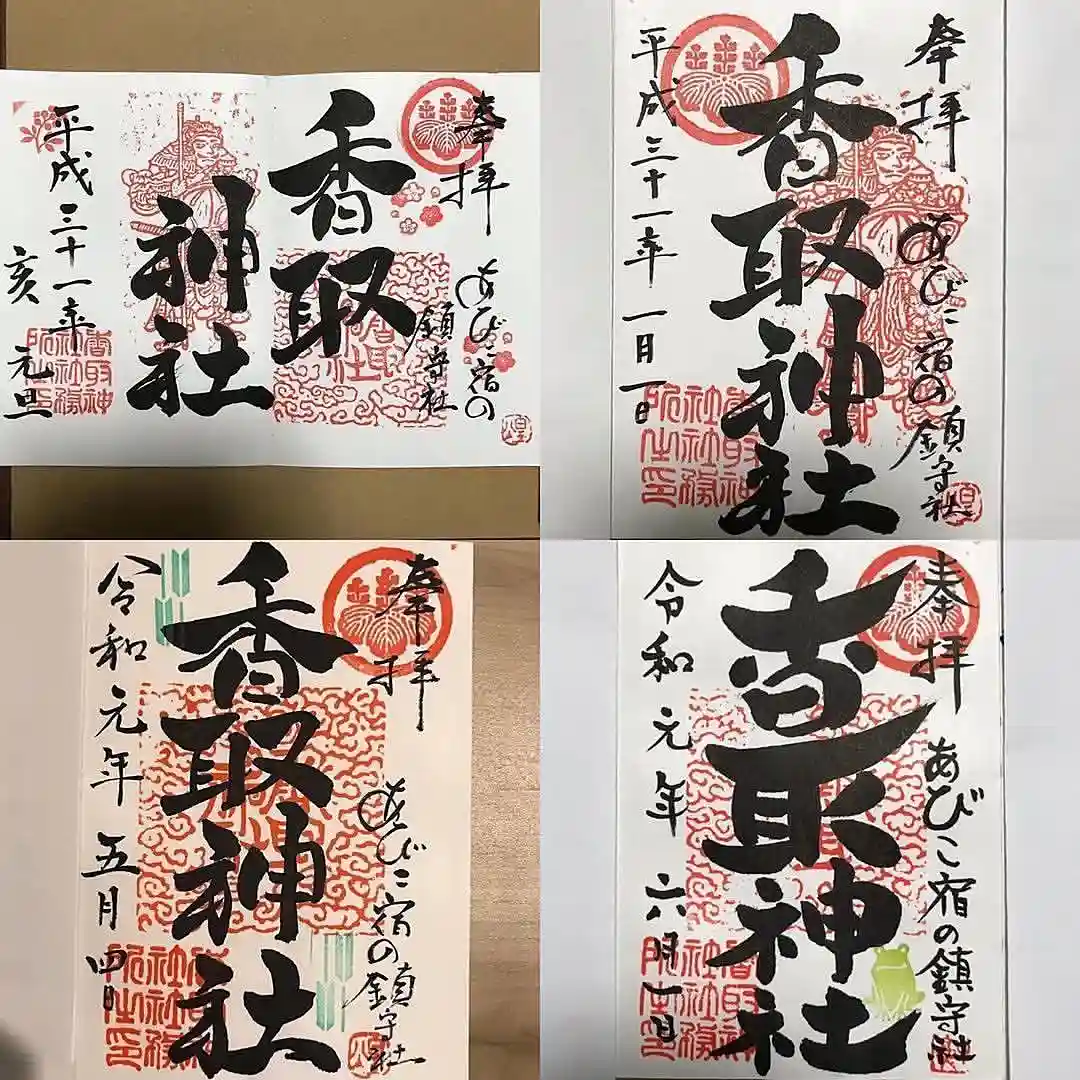 奉拝
あびこ宿の
鎮守社
香取
神社
平成三十一年
亥 元旦
奉拝
あびこ宿の鎮守社
香取神社
平成三十一年一月一日
奉拝
あびこ宿の鎮守社
香取神社
令和元年五月四日
奉拝
あびこ宿の鎮守社
香取神社
令和元年六月一日